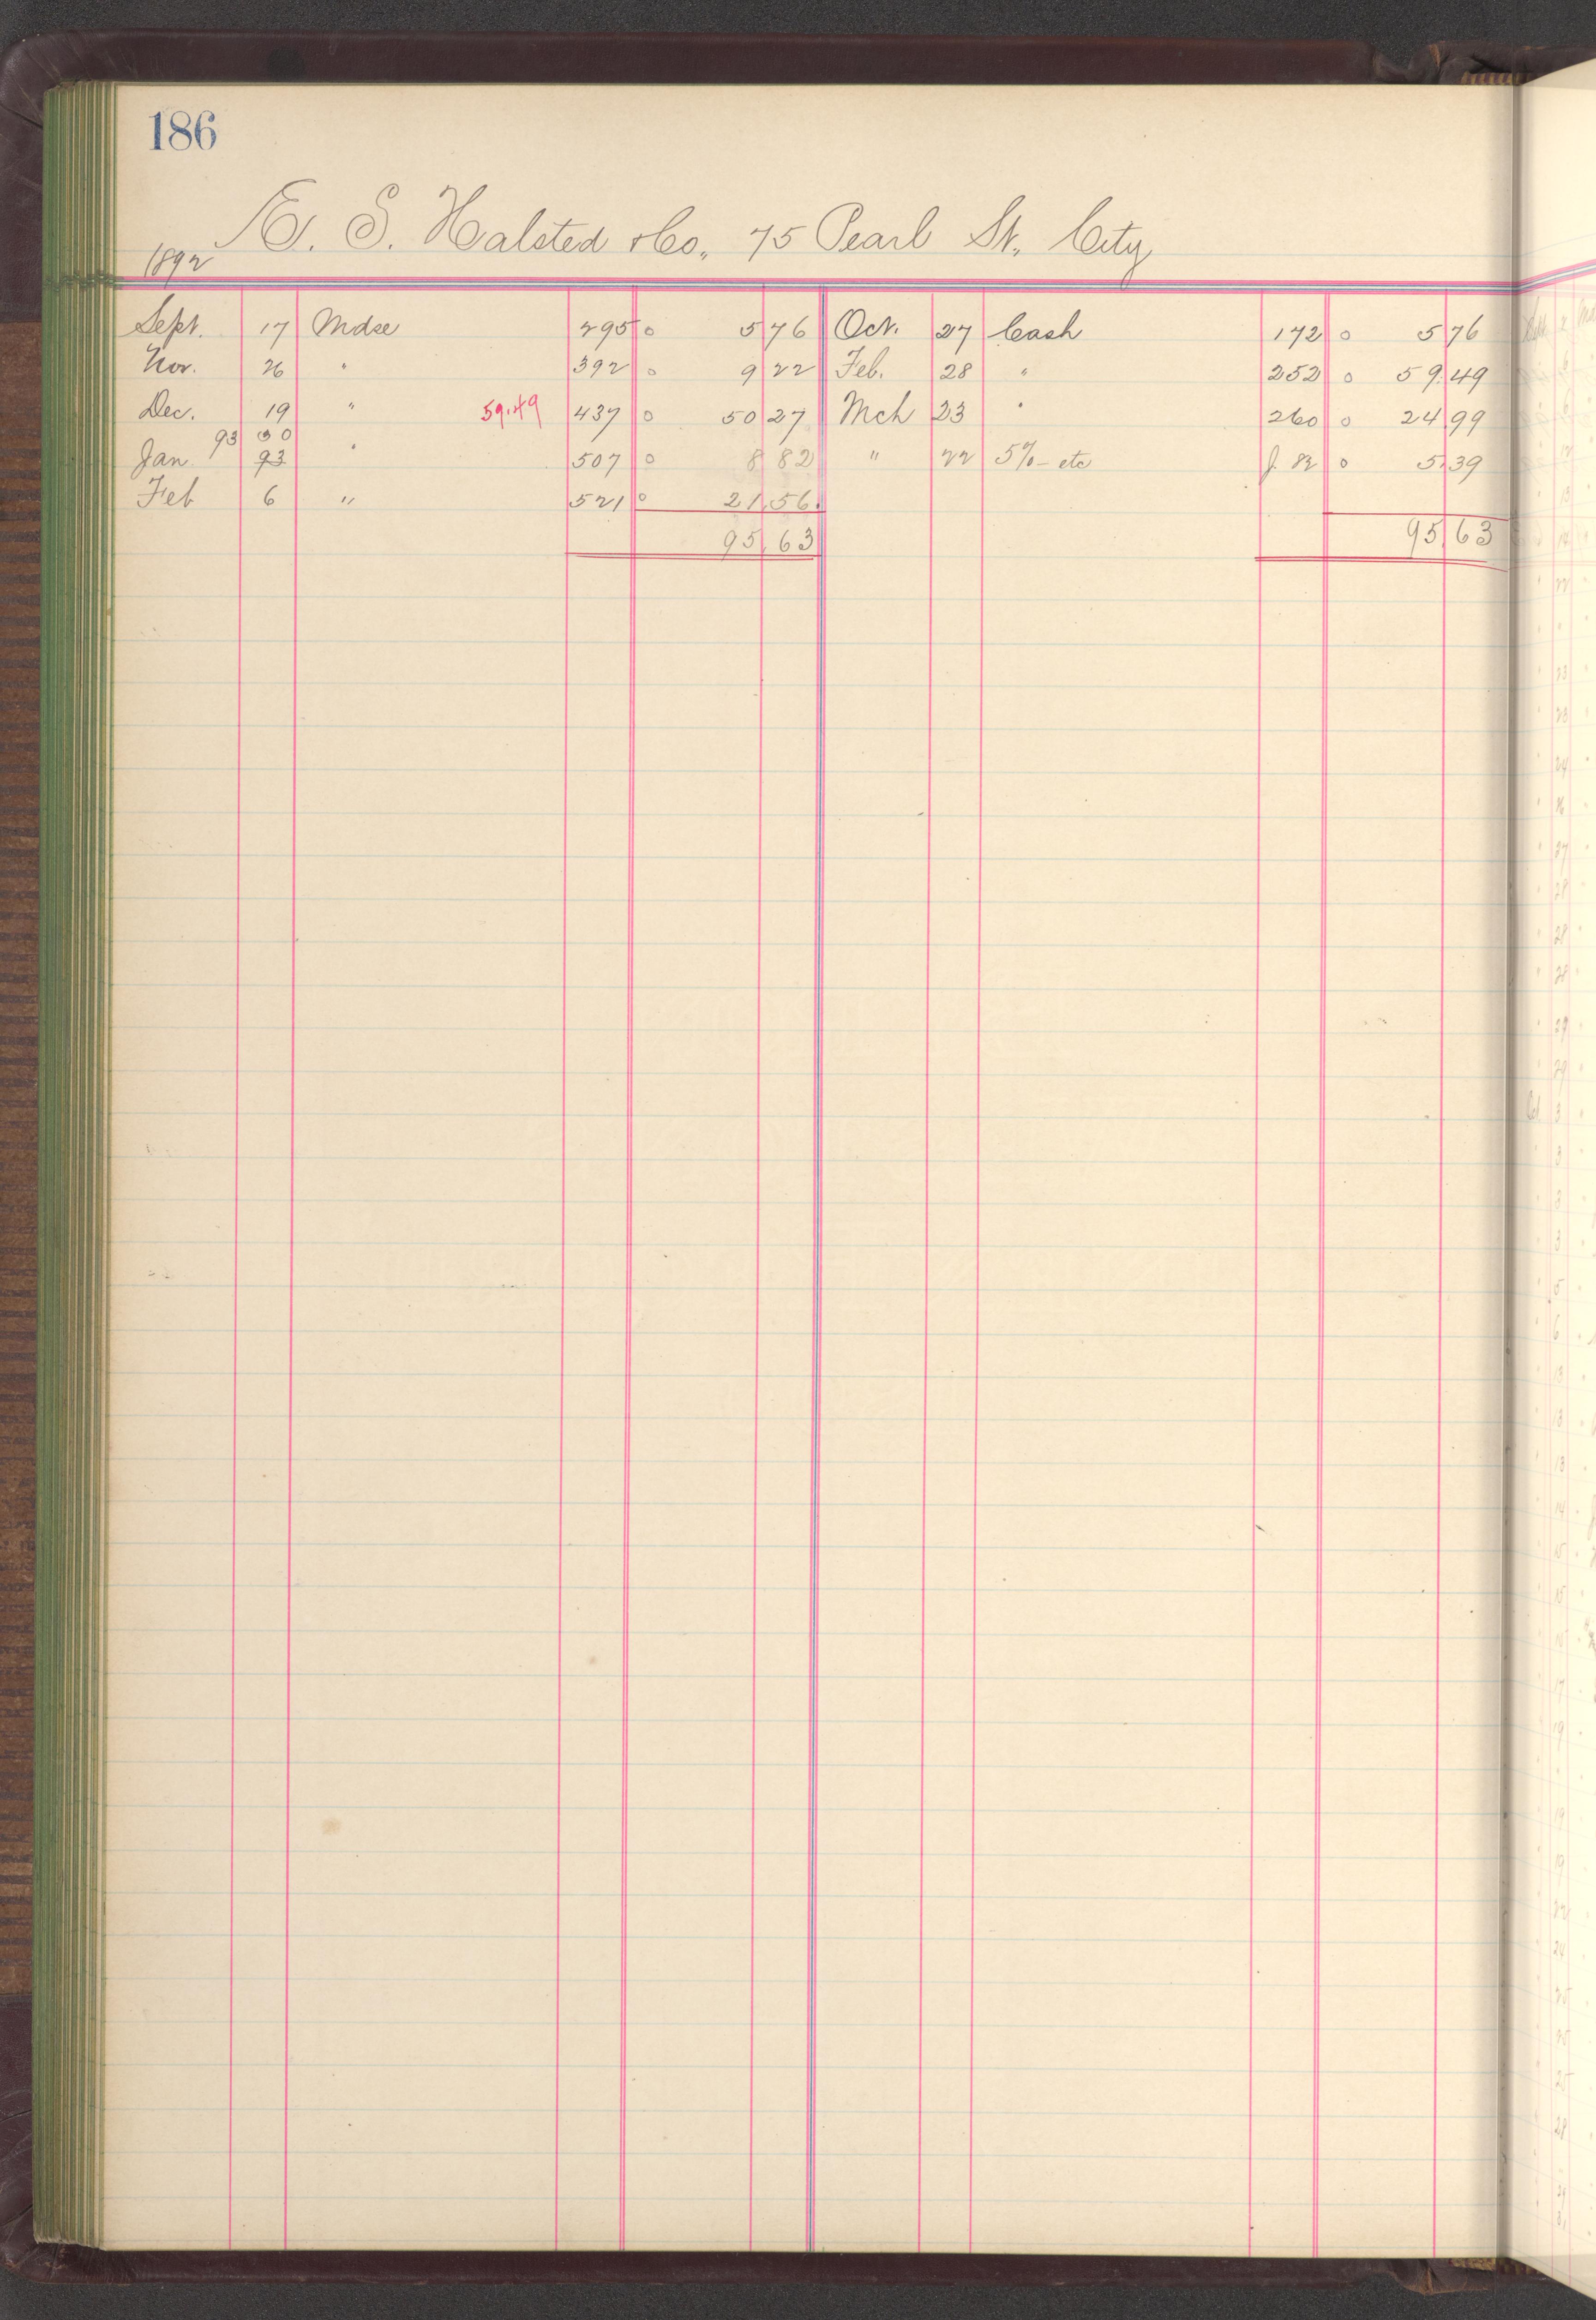 186
E. S. Halsted & Co., 75 Pearl St., City
1892
Sept. 17 Mdse 295 o 5 76 Oct. 27 Cash 172 o 5 76
Nov. 26 " 392 o 9 22 Feb. 28 " 252 o 59 49
Dec. 19 " 59.49 437 o 50 27 Mch 23 " 260 o 24 99
Jan 93 30 93 " 507 o 8 82 " 22 5% etc J. 82 o 5 39
Feb 6 " 521 o 21 56
95 63 95 63